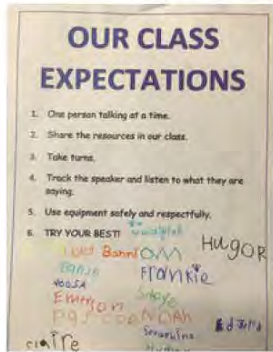 OUR CLASS
EXPECTATIONS
1. One person talking at a time.
2. Share the resources in our class.
3. Take turns.
4. Track the speaker and listen to what they are
saying.
5. Use equipment safely and respectfully.
6. TRY YOUR BEST!
Banni OM HUGOR
Frankie
YOUSA
Emerson
NOAH
Seraphina
claire